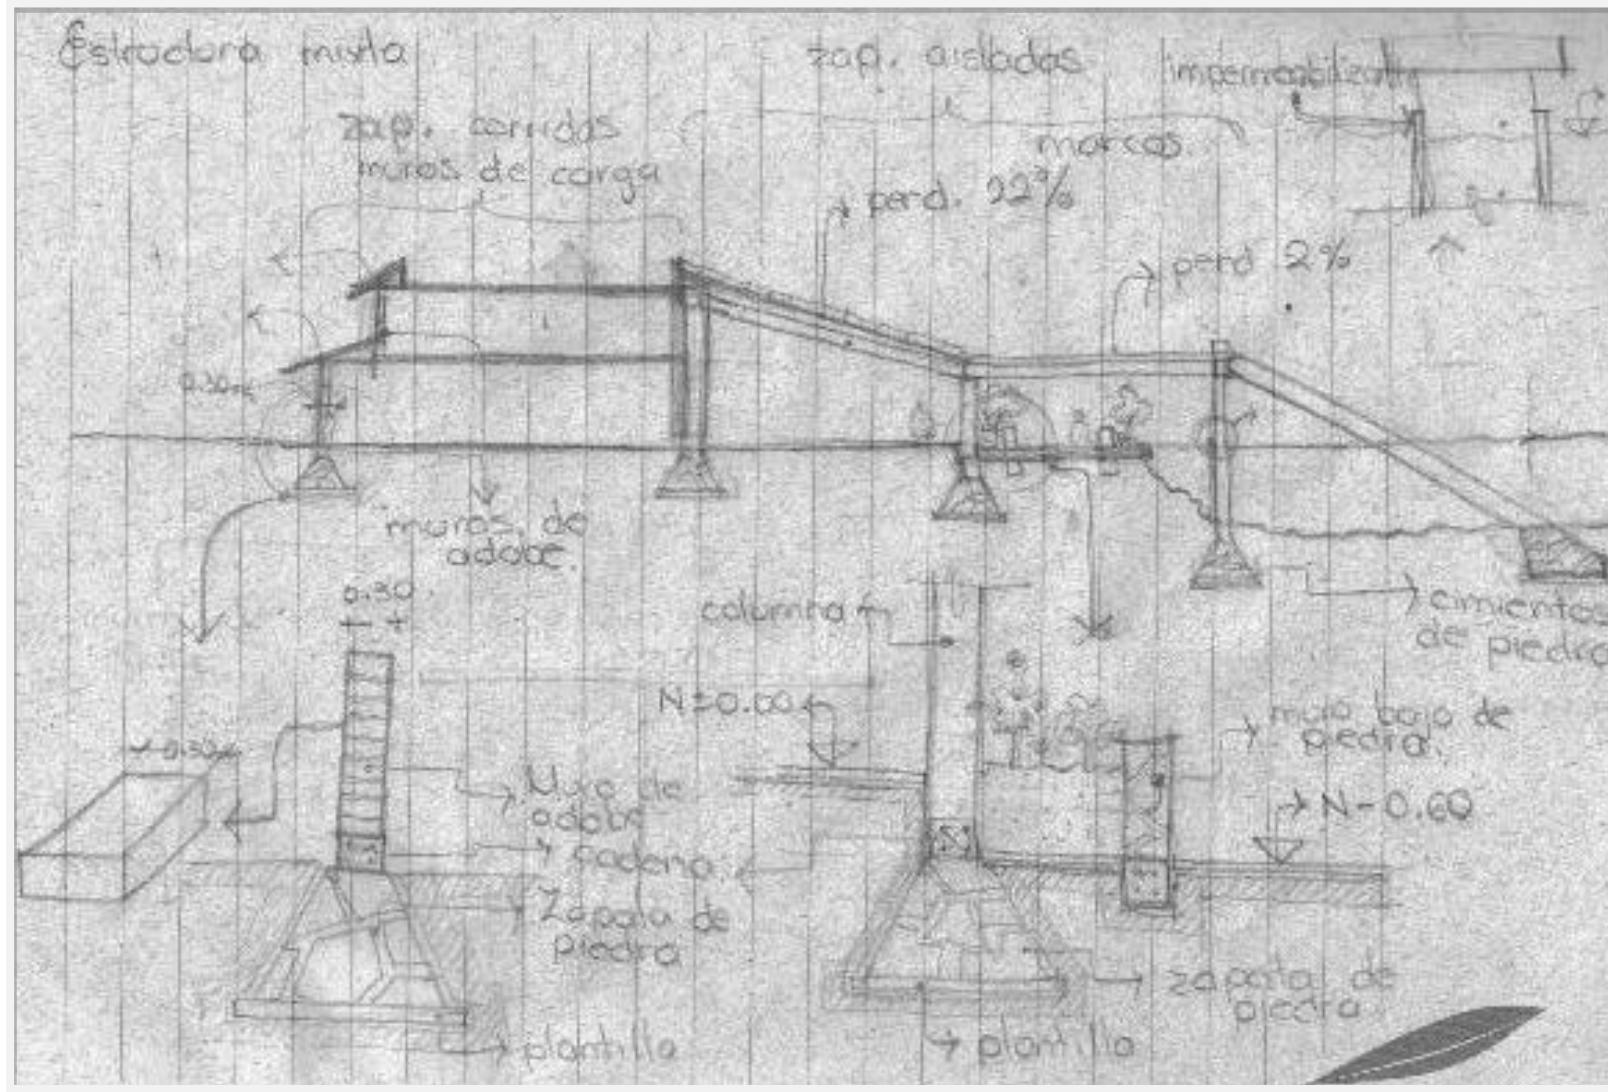 Estructura mixta
zap. aisladas
impermeabilizante
zap. corridas
muros de carga
marcos
pend. 22%
pend 2%
0.30
muros de
adobe.
0.30
columna
cimientos
de piedra
N±0.00
muro bajo de
piedra.
0.30
Muro de
adobe
N-0.60
cadena
Zapata de
piedra
zapata de
piedra
plantilla
plantilla